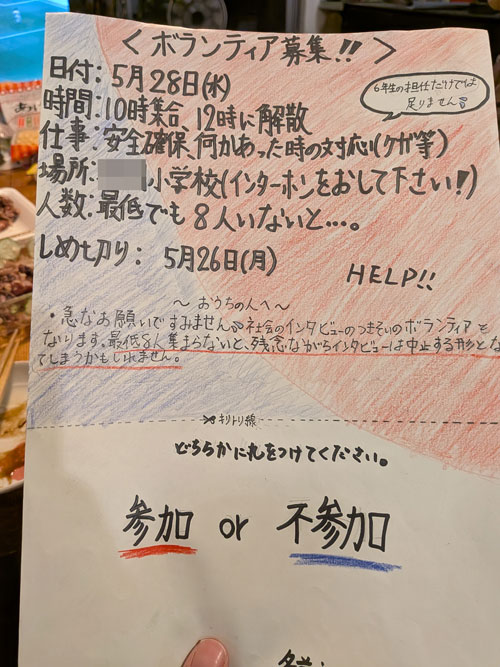 ＜ボランティア募集!!＞
日付：5月28日(水)
6年生の担任だけでは
足りません
時間：10時集合、12時に解散
仕事：安全確保、何かあった時の対応(ケガ等)
場所：小学校(インターホンをおして下さい！)
人数：最低でも8人いないと…。
しめ切り：5月26日(月)
HELP!!
〜おうちの人へ〜
・急なお願いですみません 社会のインタビューのつきそいのボランティアを
なります。最低8人集まらないと、残念ながらインタビューは中止する形とな
てしまうかもしれません。
キリトリ線
どちらかに丸をつけてください。
参加 or 不参加